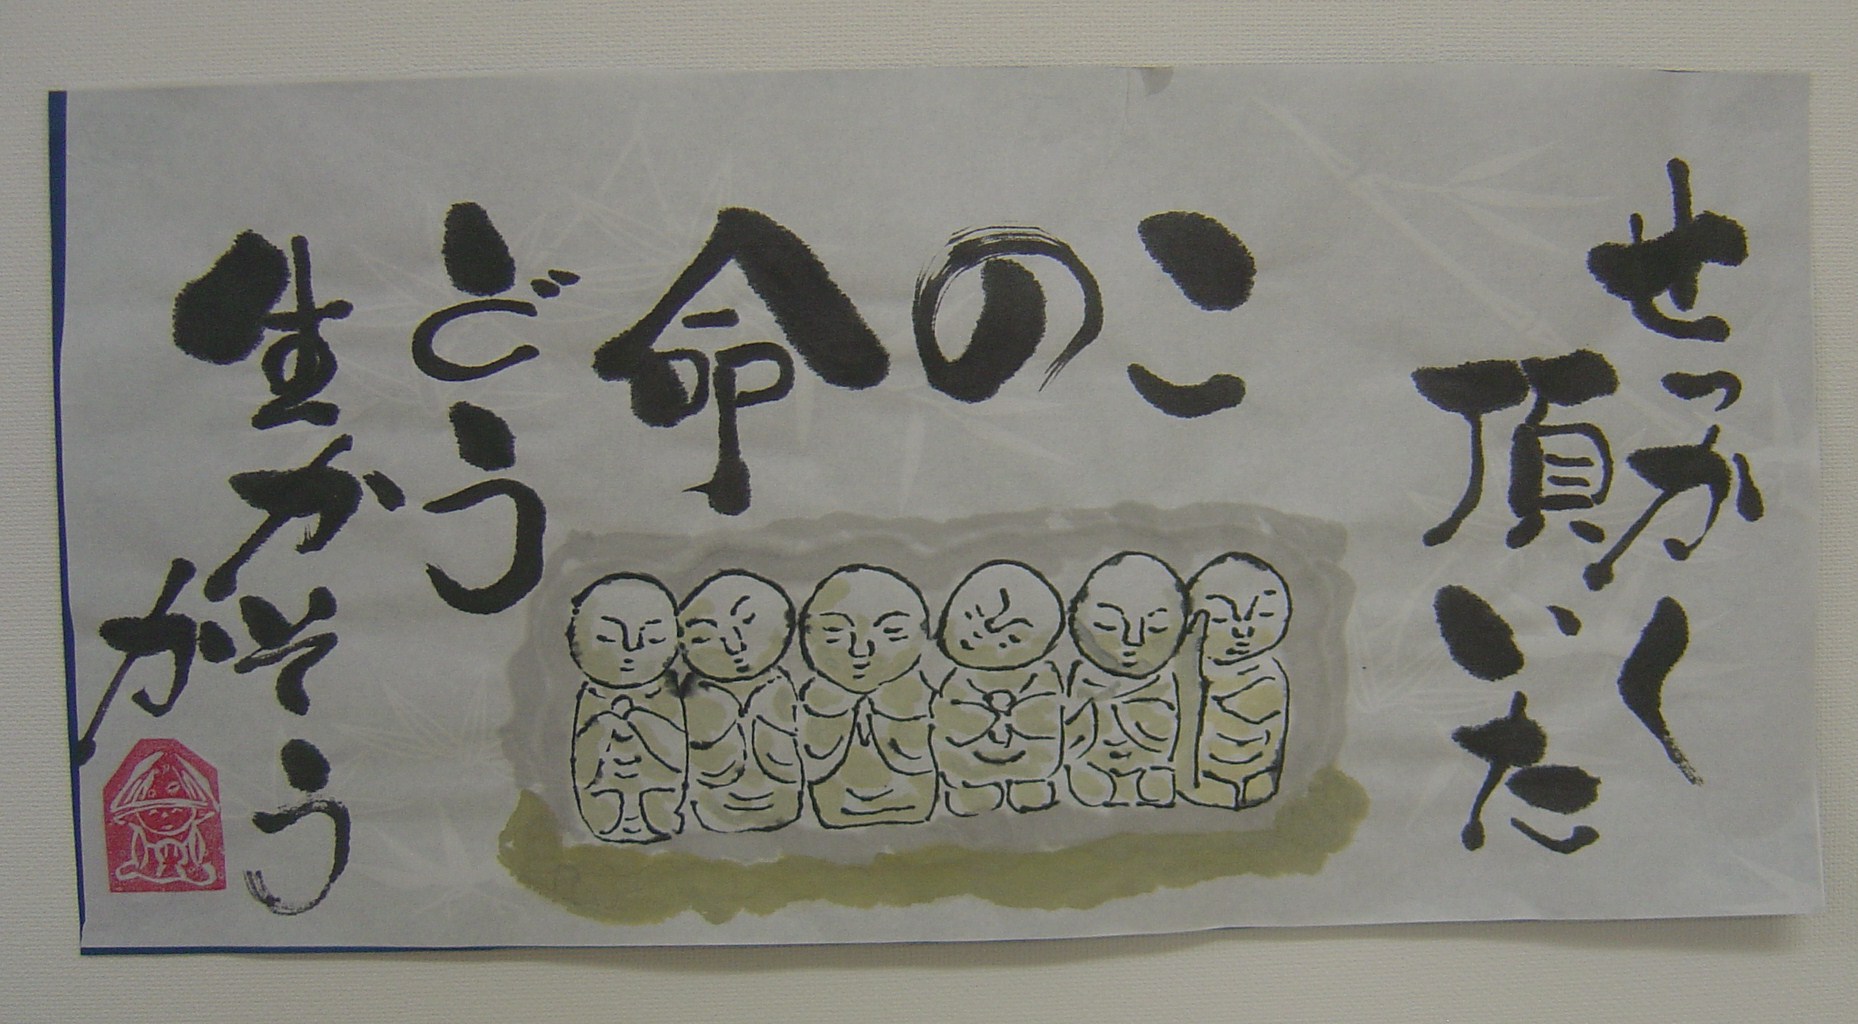 せっかく
頂いた
この命
どう
生かそう
か